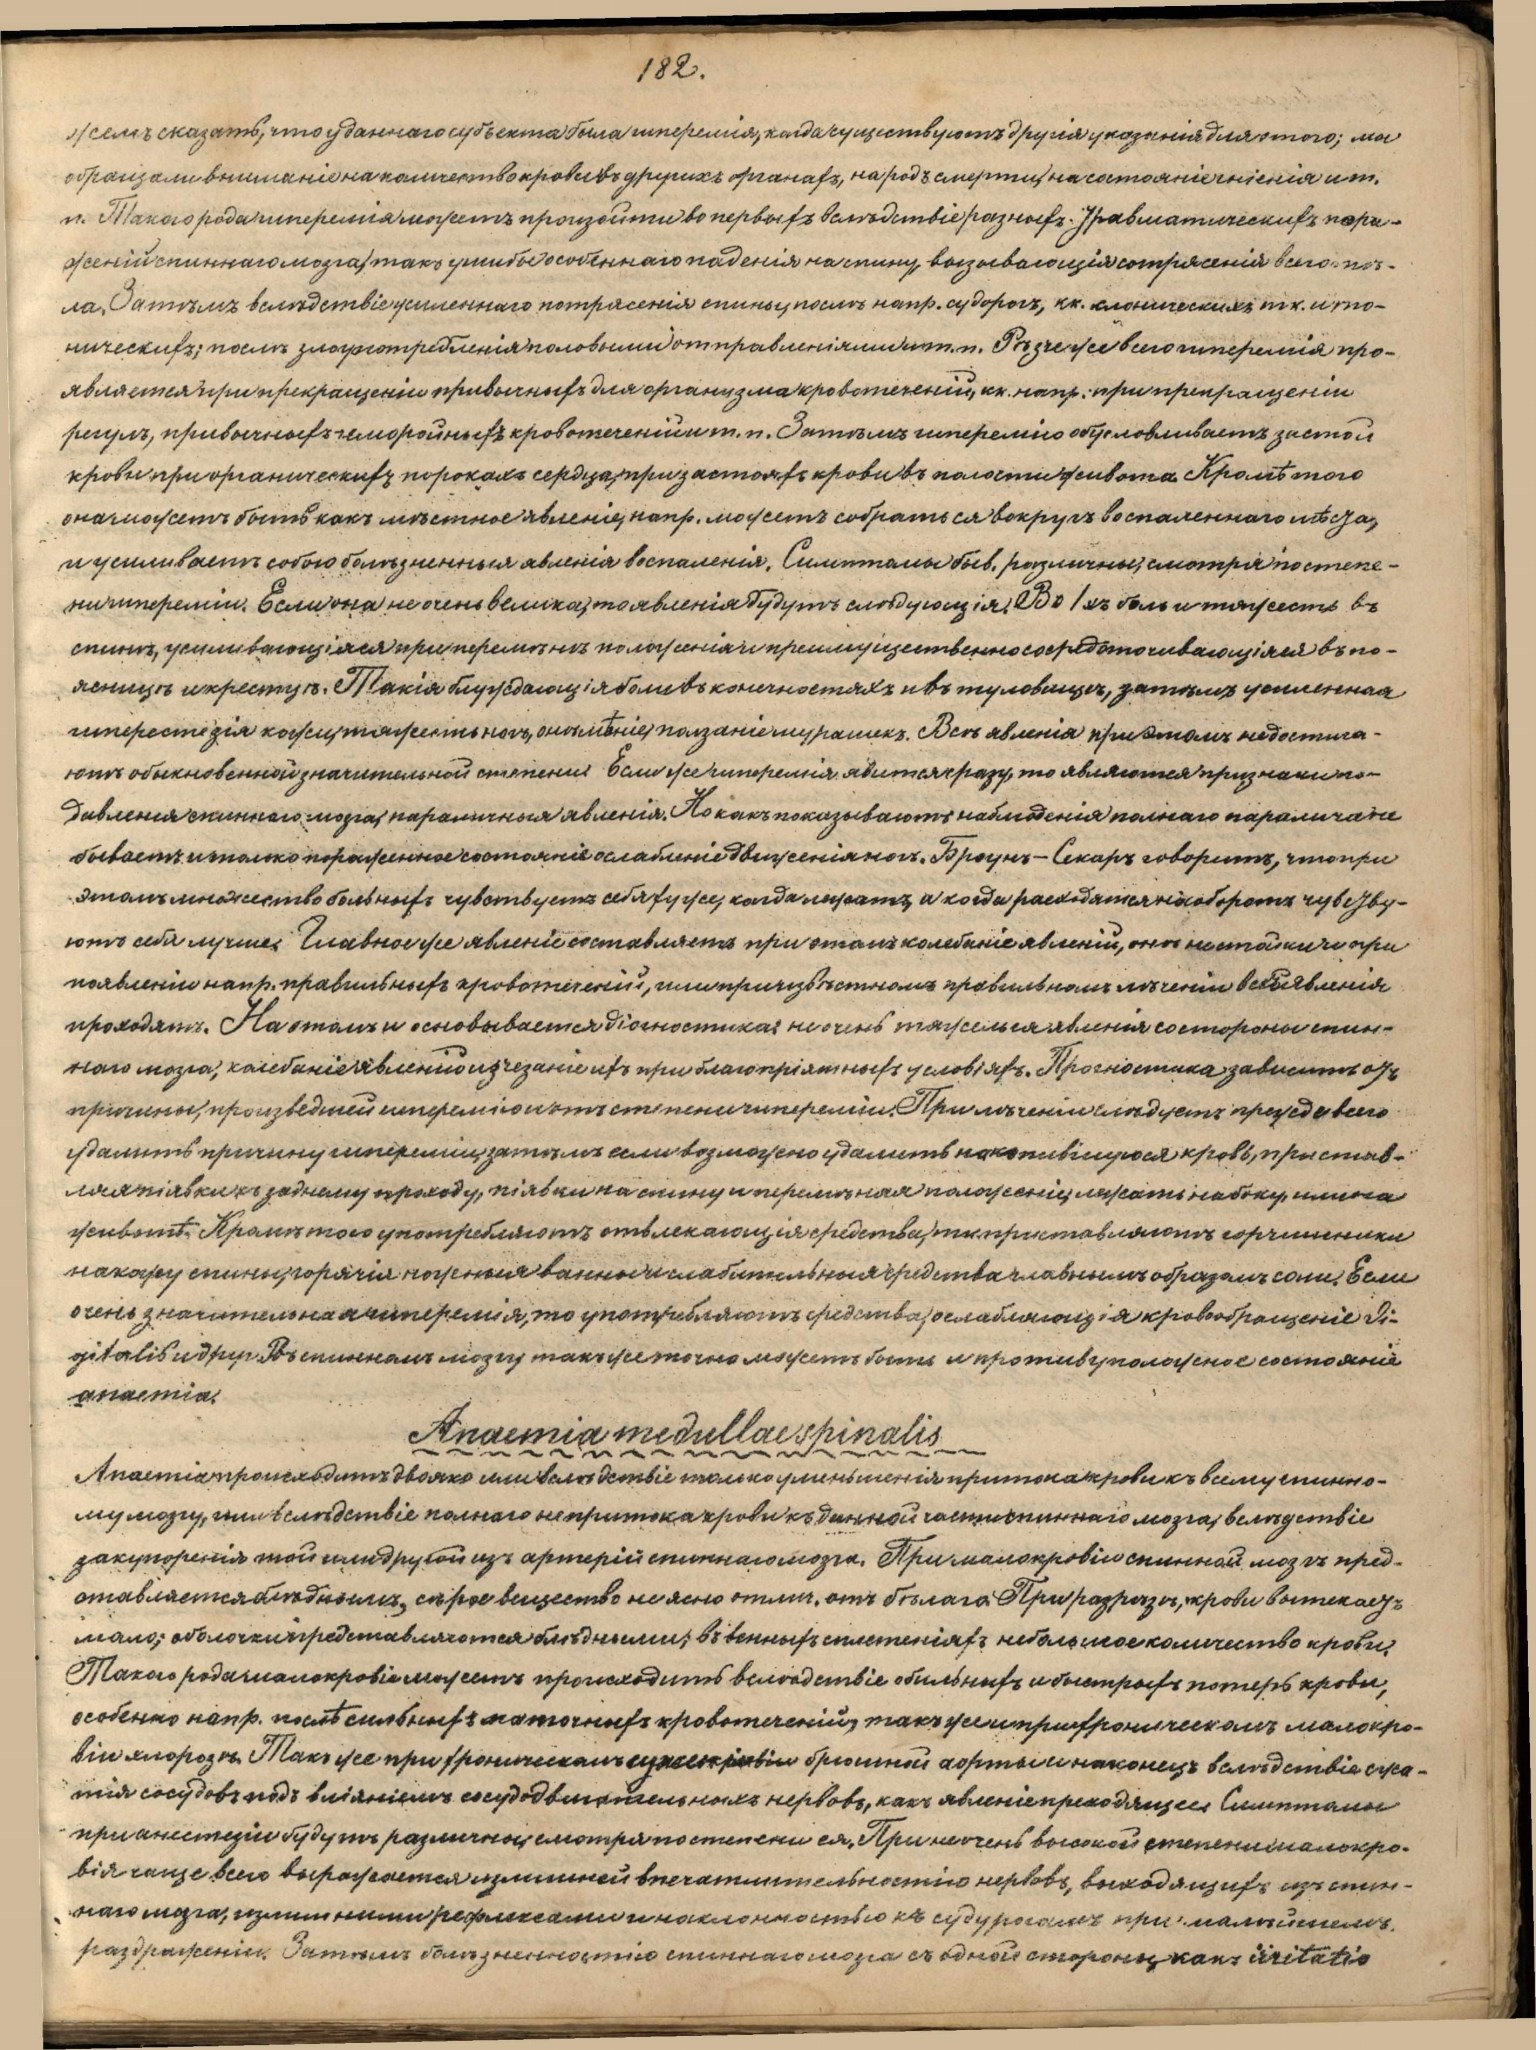 182.
жемъ сказать, что у даннаго субъекта была гиперемія, когда существуютъ другія указанія для этого; мы
обращали вниманіе на количество крови въ другихъ органахъ, на родъ смерти, на состояніе гніенія и т.
п. Такого рода гиперемія можетъ произойти во первыхъ вслѣдствіе разныхъ травматическихъ пора-
женій спиннаго мозга, такъ ушибы особеннаго паденія на спину, вызывающія сотрясенія всего тѣ-
ла. Затѣмъ вслѣдствіе усиленнаго потрясенія спины, послѣ напр. судорогъ, кк. клоническихъ тк. и то-
ническихъ; послѣ злоупотребленія половыми отправленіями и т. п. Рѣзче же всего гиперемія про-
является при прекращеніи привычныхъ для организма кровотеченій, кк. напр. при прекращеніи
регулъ, привычныхъ геморойныхъ кровотеченій и т. п. Затѣмъ гиперемію обусловливаетъ застой
крови при органическихъ порокахъ сердца, при застояхъ крови въ полости живота. Кромѣ того
она можетъ быть какъ мѣстное явленіе, напр. можетъ собраться вокругъ воспаленнаго мѣста,
и усиливаетъ собою болѣзненныя явленія воспаленія. Симптомы быв. различны, смотря по степе-
ни гипереміи. Если она не очень велика, то явленія будутъ слѣдующія: Во 1хъ боль и тяжесть въ
спинѣ, усиливающіяся при перемѣнѣ положенія и преимущественно сосредоточивающіяся въ по-
ясницѣ и крестцѣ. Такія блуждающія боли въ конечностяхъ и въ туловищѣ, затѣмъ усиленная
гиперестезія кожи, тяжесть ногъ, онѣмѣніе, ползаніе мурашекъ. Всѣ явленія при этомъ не достига-
ютъ обыкновенной значительной степени. Если же гиперемія явится сразу, то являются признаки по-
давленія спиннаго мозга, параличныя явленія. Но какъ показываютъ наблюденія полнаго паралича не
бываетъ и только пораженное состояніе ослабленіе движенія ногъ. Броунъ-Секаръ говоритъ, что при
этомъ множество больныхъ чувствуетъ себя хуже, когда лежатъ, а когда расходятся наоборотъ чувству-
ютъ себя лучше. Главное же явленіе составляетъ при этомъ колебаніе явленій, онѣ не стойки и при
появленіи напр. правильныхъ кровотеченій, или при извѣстномъ правильномъ лѣченіи всѣ явленія
проходятъ. На этомъ и основывается діагностика: не очень тяжелыя явленія со стороны спин-
наго мозга, колебаніе явленій и изчезаніе ихъ при благопріятныхъ условіяхъ. Прогностика зависитъ отъ
причины, произведшей гиперемію и отъ степени гипереміи. При лѣченіи слѣдуетъ прежде всего
удалить причину гипереміи, затѣмъ если возможно удалить накопившуюся кровь, пристав-
ляя піявки къ заднему проходу, піявки на спину и перемѣняя положеніе, лежать на боку, или на
животѣ. Кромѣ того употребляютъ отвлекающія средства, тк. приставляютъ горчишники
на кожу спины, горячія ножныя ванны и слабительныя средства главнымъ образомъ соли. Если
очень значительная гиперемія, то употребляютъ средства, ослабляющія кровообращеніе di-
gitalis и друг. Въ спинномъ мозгу также точно можетъ быть и противуположное состояніе
anaemia.
Anaemia medullae spinalis
Anaemia происходитъ двояко или вслѣдствіе только уменьшенія притока крови къ всему спинно-
му мозгу, или вслѣдствіе полнаго непритока крови къ данной части спиннаго мозга, вслѣдствіе
закупоренія той или другой изъ артерій спиннаго мозга. При малокровіи спинной мозгъ пред-
ставляется блѣднымъ, сѣрое вещество не ясно отлич. отъ бѣлаго. При разрѣзѣ, крови вытекаетъ
мало; оболочки представляются блѣдными; въ венныхъ сплетеніяхъ небольшое количество крови.
Такого рода малокровіе можетъ происходить вслѣдствіе обильныхъ и быстрыхъ потерь крови,
особенно напр. послѣ сильныхъ маточныхъ кровотеченій, также и при хроническомъ малокро-
віи хлорозѣ. Также при хроническомъ суженіи брюшной аорты и наконецъ вслѣдствіе сжа-
тія сосудовъ подъ вліяніемъ сосудодвигательныхъ нервовъ, какъ явленіе преходящее. Симптомы
при анестезіи будутъ различны, смотря по степени ея. При не очень высокой степени малокро-
вія чаще всего выражается излишней впечатлительностію нервовъ, выходящихъ изъ спин-
наго мозга, излишними рефлексами и наклонностью къ судурогамъ при малѣйшемъ
раздраженіи. Затѣмъ болѣзненностію спиннаго мозга съ одной стороны, какъ irritatio